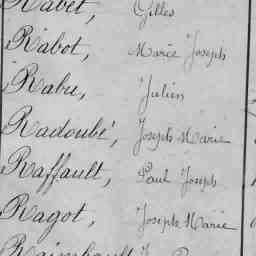 Rabet, Gilles
Rabot, Marie Joseph
Rabu, Julien
Radoubé, Joseph Marie
Raffault, Paul Joseph
Ragot, Joseph Marie
Raimbault